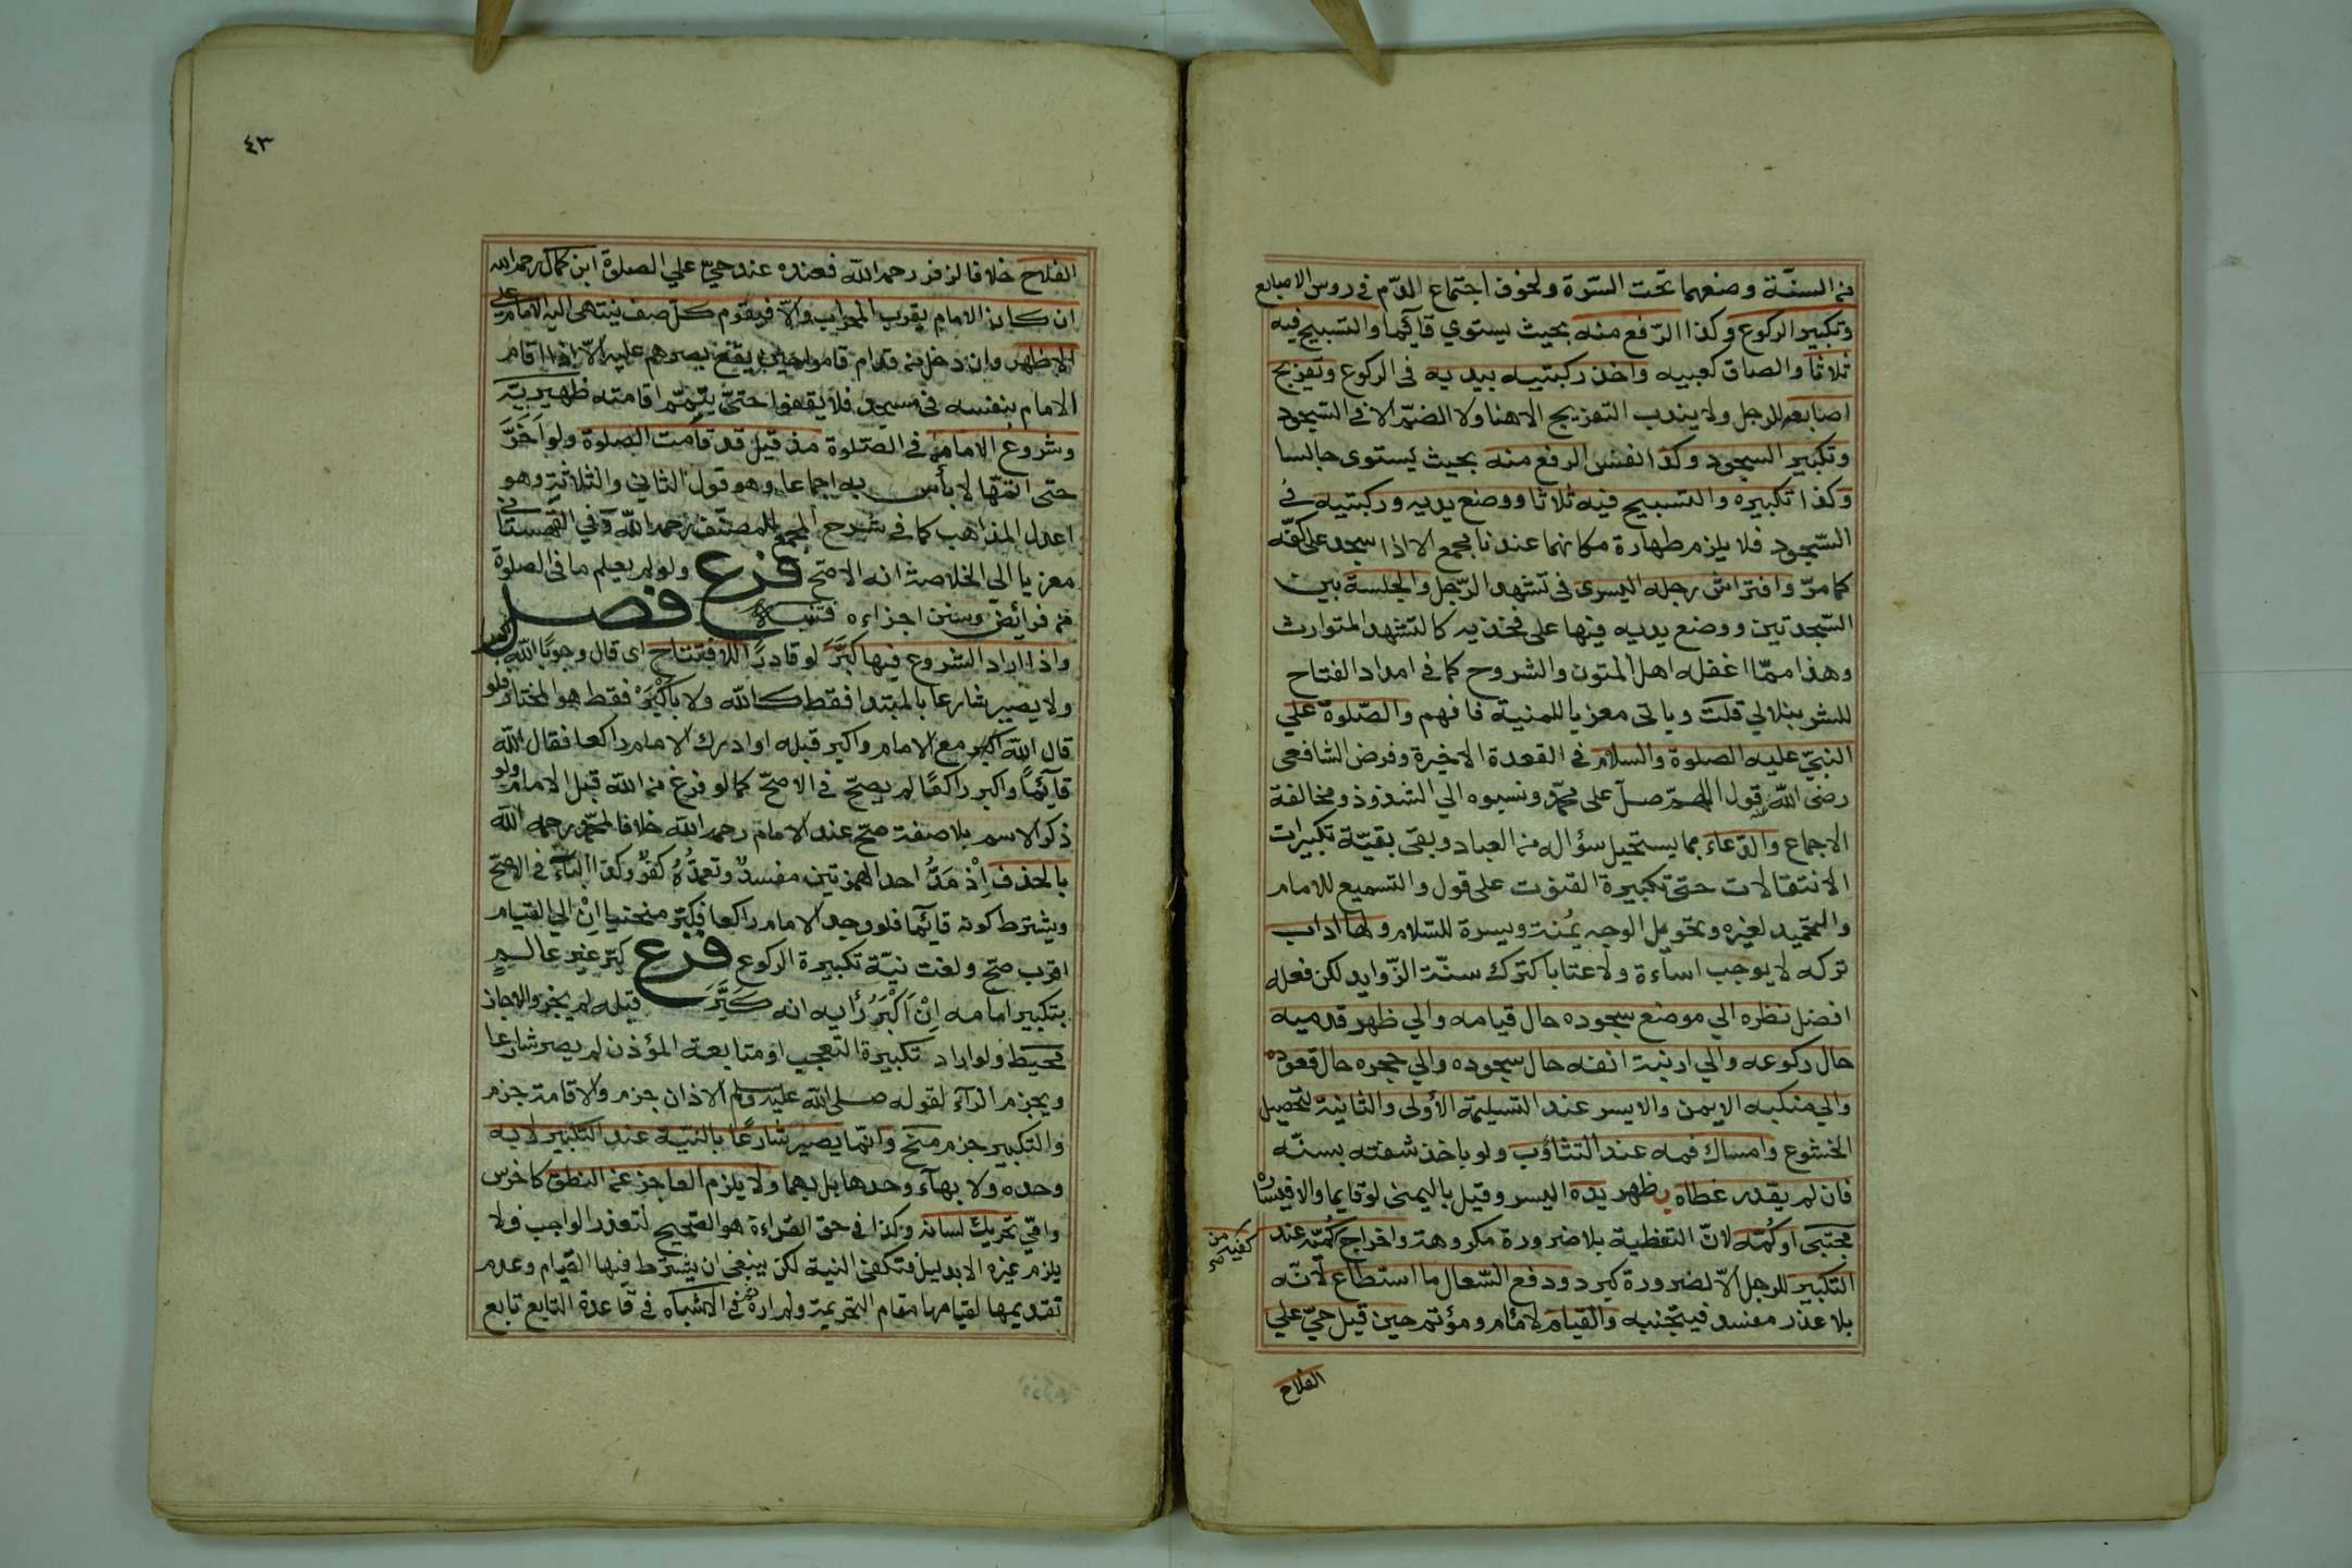 من السنة وضعهما تحت السرة ولخوف اجتماع الدم في روس الاصابع
وتكبير الركوع وكذا الرفع منه بحيث يستوي قائما والتسبيح فيه
ثلاثا والصاق كعبيه واخذ ركبتيه بيديه في الركوع وتفريج
اصابعه للرجل ولا يندب التفريج الا هنا ولا الضم الا في السجود
وتكبير السجود وكذا نفس الرفع منه بحيث يستوى جالسا
وكذا تكبيره والتسبيح فيه ثلاثا ووضع يديه وركبتيه في
السجود فلا يلزم طهارة مكانهما عندنا مجمع الا اذا سجد على كفه
كما مر وافتراش رجله اليسرى في تشهد الرجل والجلسة بين
السجدتين ووضع يديه فيها على فخذيه كالتشهد المتوارث
وهذا مما اغفله اهل المتون والشروح كما في امداد الفتاح
للشرنبلالي قلت وياتى معزيا للمنية فافهم والصلوة علي
النبي عليه الصلوة والسلام في القعدة الاخيرة وفرض الشافعى
رضى الله قول اللهم صل على محمد ونسبوه الي الشذوذ ومخالفة
الاجماع والدعاء بما يستحيل سؤاله من العباد وبقى بقية تكبيرات
الانتقالات حتى تكبيرة القنوت على قول والتسميع للامام
والتحميد لغيره وتحويل الوجه يمنة ويسرة للسلام ولها اداب
تركه لا يوجب اساءة ولا عتابا كترك سنة الزوايد لكن فعله
افضل نظره الي موضع سجوده حال قيامه والي ظهر قدميه
حال ركوعه والي ارنبة انفه حال سجوده والي حجره حال قعوده
والي منكبه الايمن والايسر عند التسليمة الأولى والثانية لتحصيل
الخشوع وامساك فمه عند التثاؤب ولو باخذ شفته بسنه
فان لم يقدر غطاه بظهر يده اليسر وقيل باليمنى لو قايما والا فيسراه
مجتبى او كمه لان التغطية بلا ضرورة مكروهة واخراج كميه عند
من كفيه صح
التكبير للرجل الا لضرورة كبرد ودفع السعال ما استطاع لانه
بلا عذر مفسد فيتجنبه والقيام لامام ومؤتم حين قيل حي علي
الفلاح
٤٣
الفلاح خلافا لزفر رحمه الله فعنده عند حي علي الصلوة ابن كمال رحمه الله
ان كان الامام بقرب المحراب والا فيقوم كل صف ينتهى اليه الامام على
الاظهر وان دخل من قدام قاموا حين يقع بصرهم عليه الا اذا اقام
الامام بنفسه في مسجد فلا يقفوا حتى يتم اقامته ظهيرية
وشروع الامام في الصلوة مذ قيل قد قامت الصلوة ولو اخر
حتى اتمها لا بأس به اجماعا وهو قول الثاني والثلاثة وهو
اعدل المذاهب كما في شرح المجمع للمصنف رحمه الله وفي القهستانى
معزيا الى الخلاصة انه الاصح فرع ولو لم يعلم ما في الصلوة
من فرائض وسنن اجزاءه قنية فصل
واذا اراد الشروع فيها كبر لو قادرا للافتتاح اى قال وجوبا الله اكبر
ولا يصير شارعا بالمبتدا فقط كالله ولا باكبر فقط هو المختار فلو
قال الله اكبر مع الامام واكبر قبله او ادرك الامام راكعا فقال الله
قائما واكبر راكعا لم يصح في الاصح كما لو فرغ من الله قبل الامام ولو
ذكر الاسم بلا صفة صح عند الامام رحمه الله خلافا لمحمد رحمه الله
بالحذف اذ مد احد الهمزتين مفسد وتعمده كفر وكذا الباء في الاصح
ويشترط كونه قائما فلو وجد الامام راكعا فكبر منحنيا ان الي القيام
اقرب صح ولغت نية تكبيرة الركوع فرع كبر غير عالم
بتكبير امامه ان اكبر رأيه انه كبر قبله لم يجز والا جاز
محيط ولو اراد تكبيرة التعجب او متابعة المؤذن لم يصر شارعا
ويجزم الراء لقوله صلى الله عليه وسلم الاذان جزم والاقامة جزم
والتكبير جزم منح وانما يصير شارعا بالنية عند التكبير لا به
وحده ولا بهاء وحدها بل بهما ولا يلزم العاجز عن النطق كاخرس
وامي تحريك لسانه وكذا في حق القراءة هو الصحيح لتعذر الواجب فلا
يلزم غيره الا بدليل فتكفى النية لكن ينبغي ان يشترط فيها القيام وعدم
تقديمها لقيامها مقام التحريمة ولم اره ثم في الاشباه في قاعدة التابع تابع